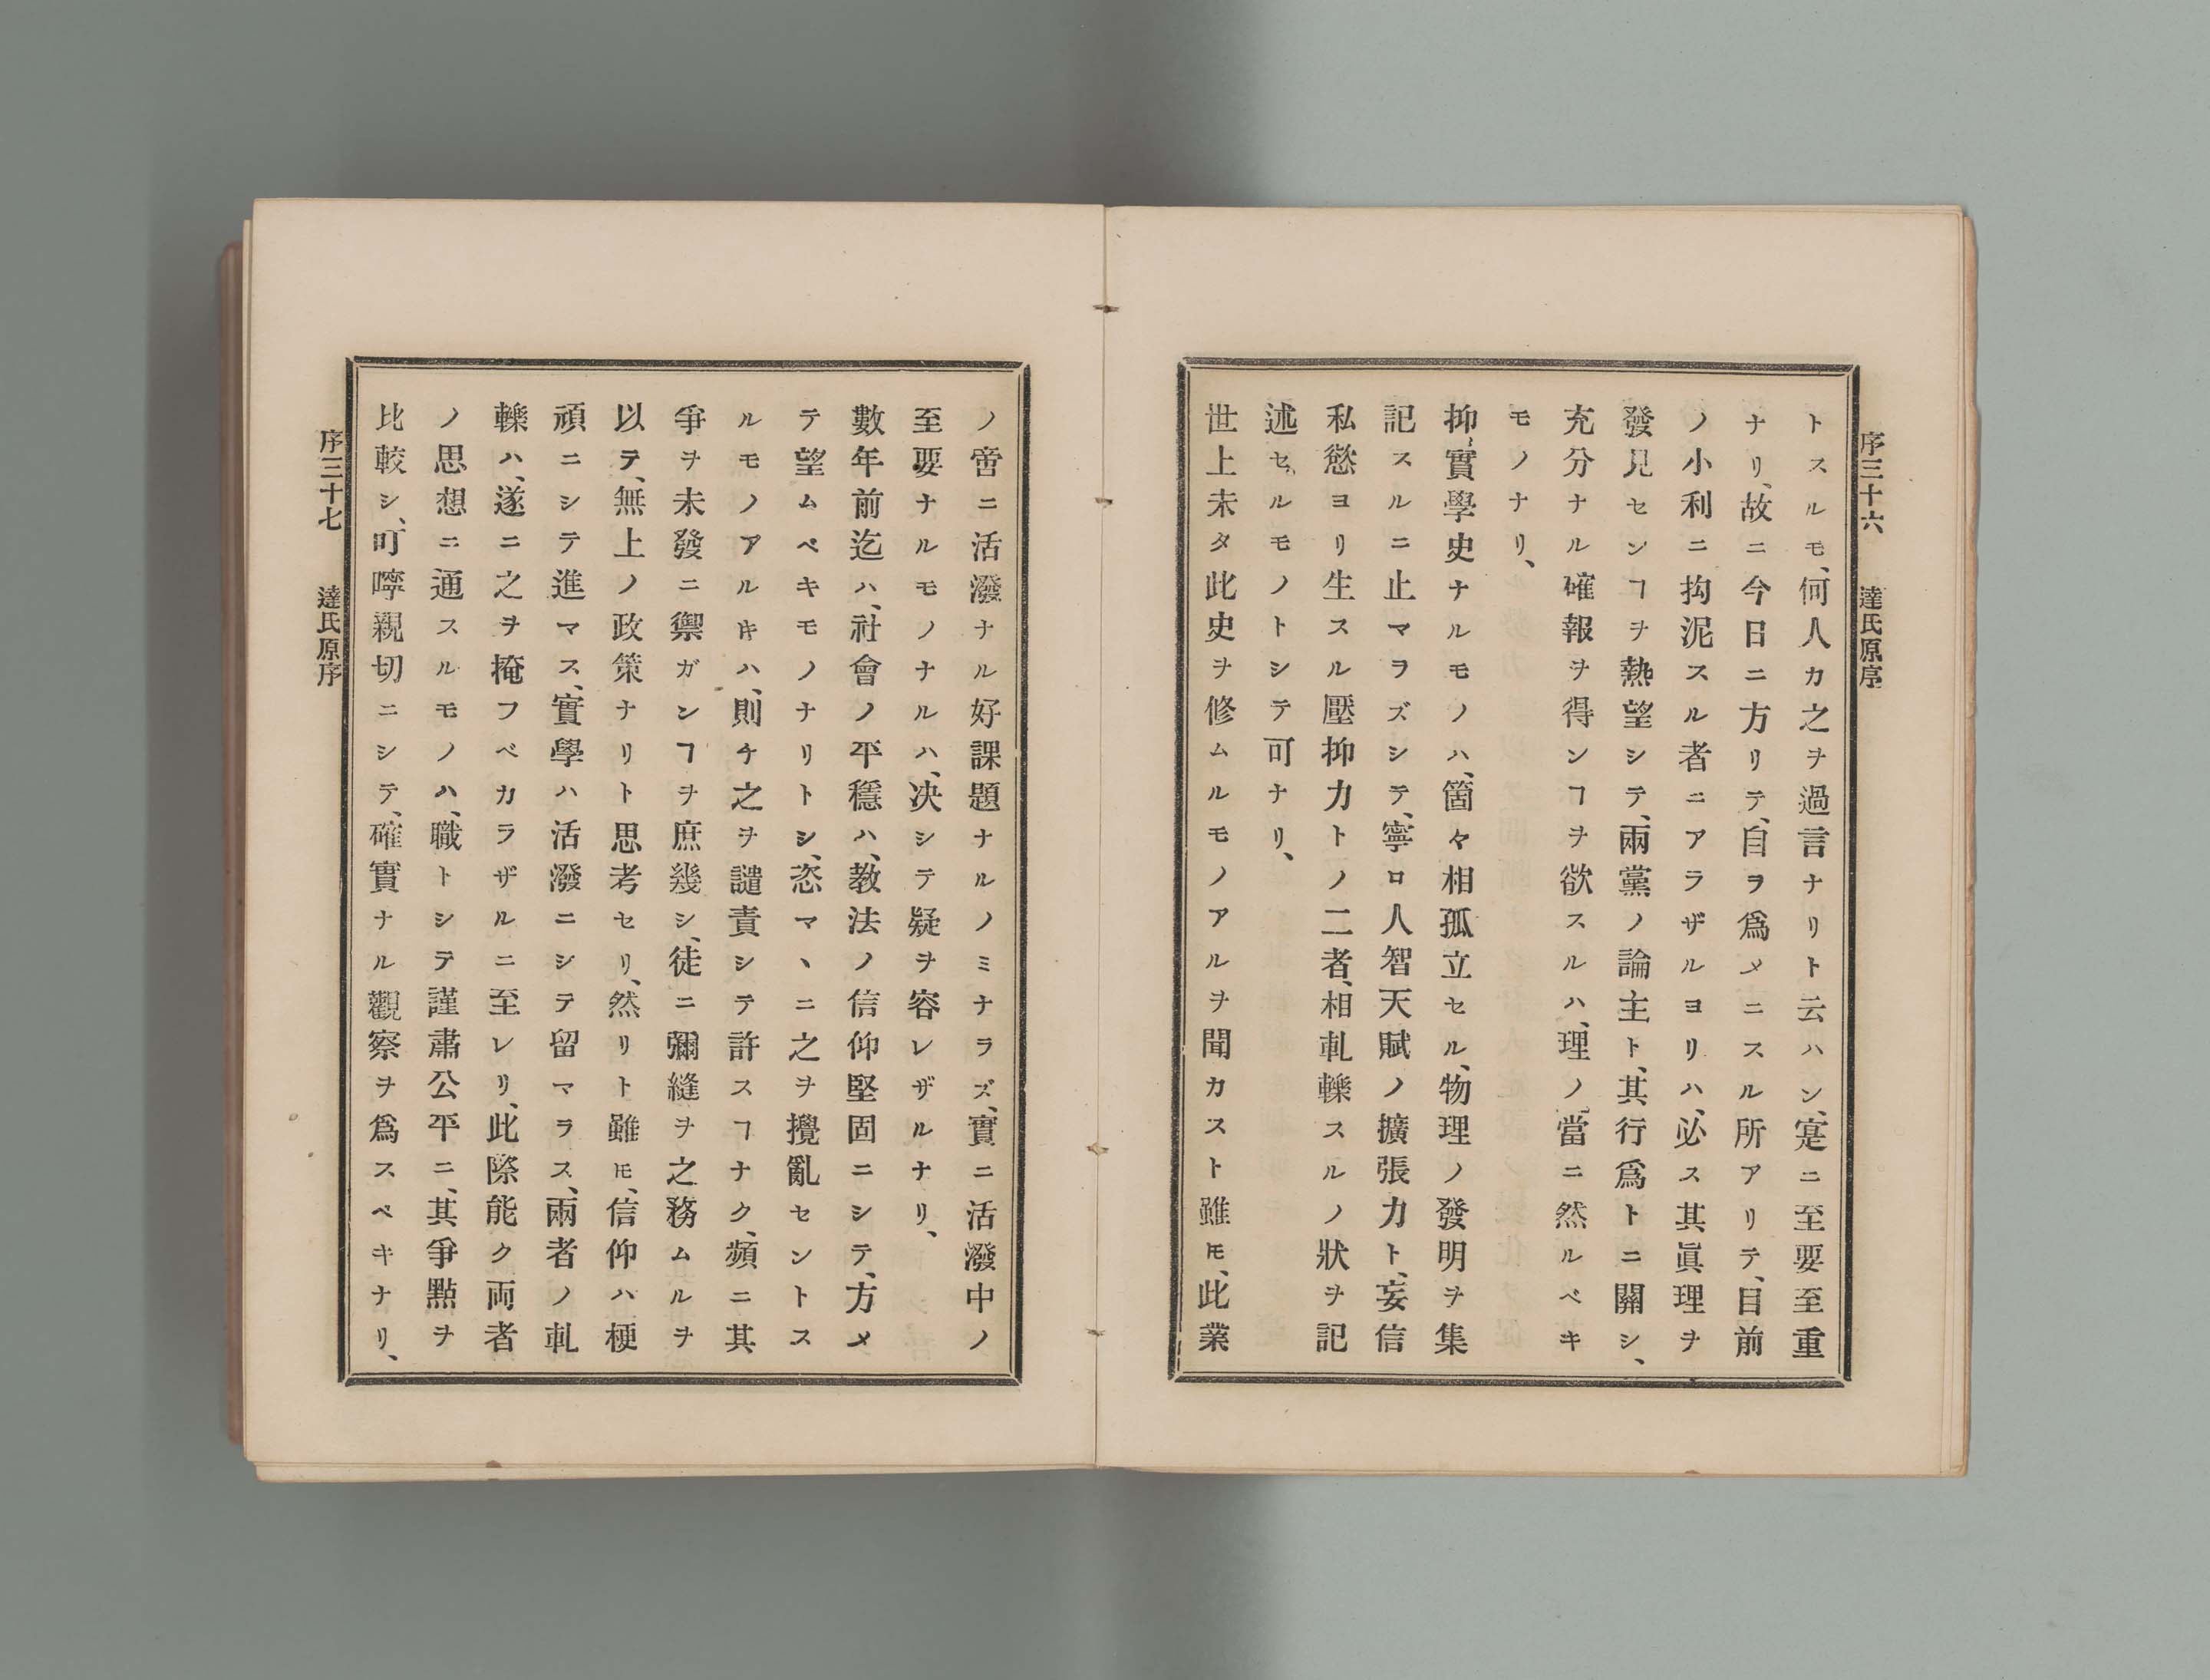 序三十六　達氏原序
トスルモ、何人カ之ヲ過言ナリト云ハン、寔ニ至要至重
ナリ、故ニ今日ニ方リテ、自ヲ爲メニスル所アリテ、目前
ノ小利ニ拘泥スル者ニアラザルヨリハ、必ス其眞理ヲ
發見センヿヲ熱望シテ、兩黨ノ論主ト、其行爲トニ關シ、
充分ナル確報ヲ得ンヿヲ欲スルハ、理ノ當ニ然ルベキ
モノナリ、
抑、實學史ナルモノハ、箇々相孤立セル、物理ノ發明ヲ集
記スルニ止マラズシテ、寧ロ人智天賦ノ擴張力ト、妄信
私慾ヨリ生スル壓抑力トノ二者、相軋轢スルノ狀ヲ記
述セルモノトシテ可ナリ、
世上未タ此史ヲ修ムルモノアルヲ聞カスト雖ㇳモ、此業
ノ啻ニ活潑ナル好課題ナルノミナラズ、實ニ活潑中ノ
至要ナルモノナルハ、决シテ疑ヲ容レザルナリ、
數年前迄ハ、社會ノ平穩ハ、教法ノ信仰堅固ニシテ、方メ
テ望ムベキモノナリトシ、恣マヽニ之ヲ攪亂セントス
ルモノアルㇳキハ、則チ之ヲ譴責シテ許スヿナク、頻ニ其
爭ヲ未發ニ禦ガンヿヲ庶幾シ、徒ニ彌縫ヲ之務ムルヲ
以テ、無上ノ政策ナリト思考セリ、然リト雖ㇳモ、信仰ハ梗
頑ニシテ進マス、實學ハ活潑ニシテ留マラス、兩者ノ軋
轢ハ、遂ニ之ヲ掩フベカラザルニ至レリ、此際能ク両者
ノ思想ニ通スルモノハ、職トシテ謹肅公平ニ、其爭點ヲ
比較シ、叮嚀親切ニシテ、確實ナル觀察ヲ爲スベキナリ、
序三十七　達氏原序